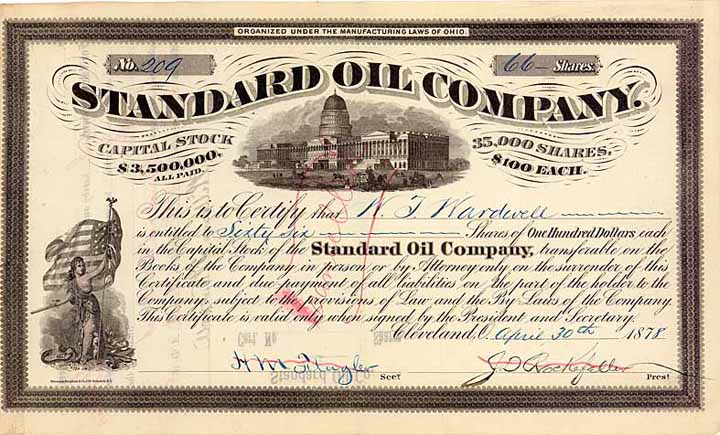 ORGANIZED UNDER THE MANUFACTURING LAWS OF OHIO.
No. 209
66 Shares
STANDARD OIL COMPANY.
CAPITAL STOCK
$3,500,000.
ALL PAID.
35,000 SHARES.
$100 EACH.
This is to Certify that W. T. Wardwell
is entitled to Sixty six Shares of One Hundred Dollars each
in the Capital Stock of the Standard Oil Company, transferable on the
Books of the Company in person or by Attorney only on the surrender of this
Certificate and due payment of all liabilities on the part of the holder to the
Company, subject to the provisions of Law and the By Laws of the Company.
This Certificate is valid only when signed by the President and Secretary.
Cleveland, O. April 30th 1878
Cert. No. Shares
Standard Oil Co
H M Flagler Secy
J D Rockefeller Prest